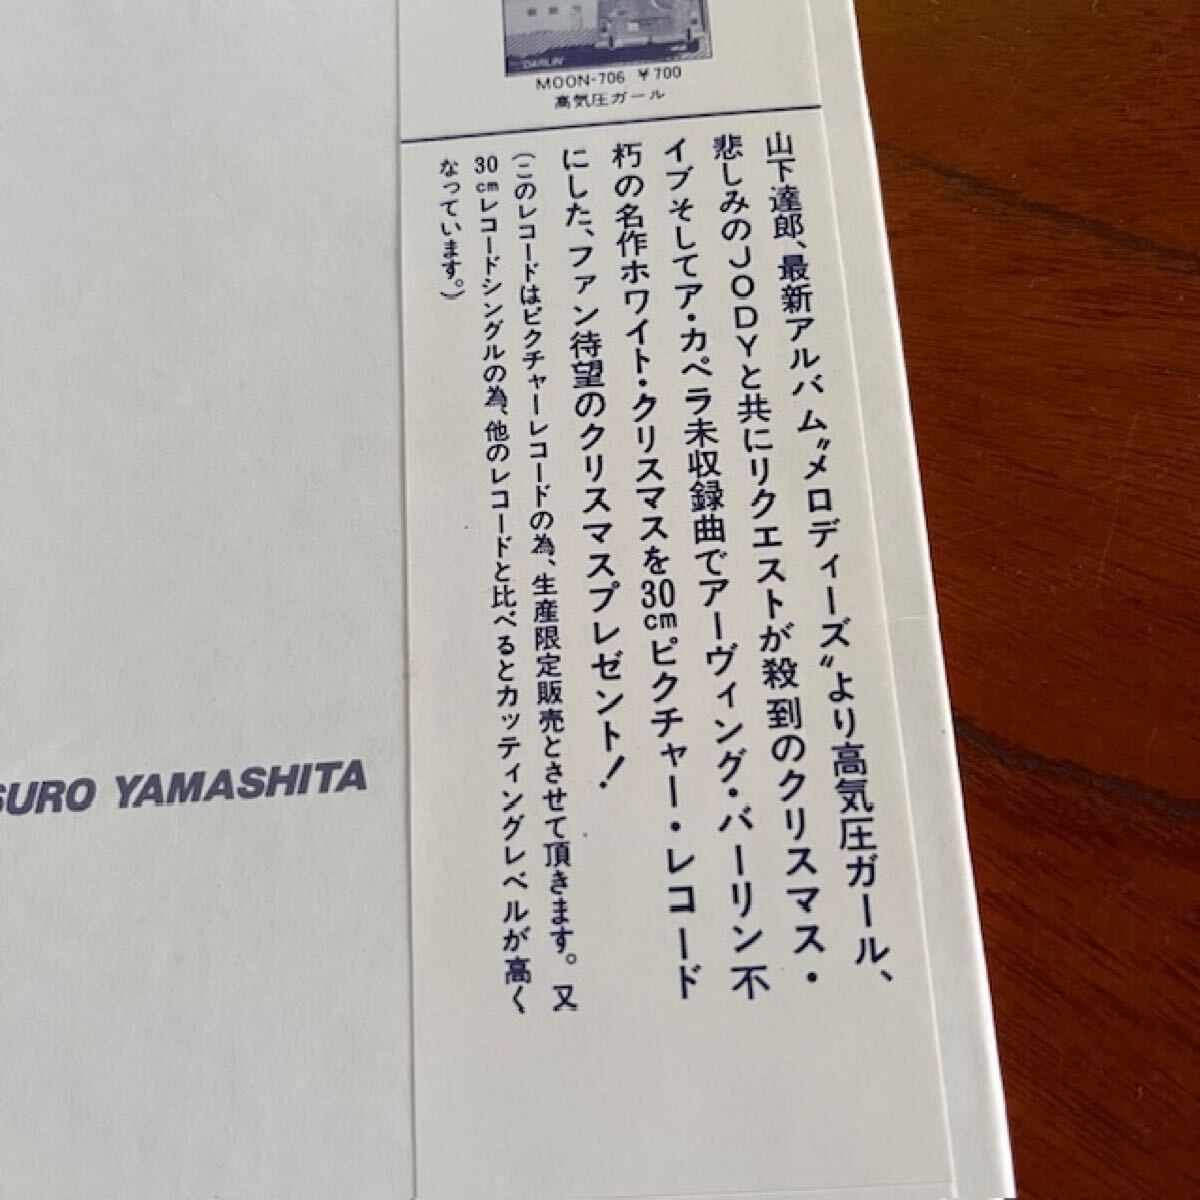 DARLIN'
MOON-706 ¥700
高気圧ガール
山下達郎、最新アルバム〝メロディーズ〟より高気圧ガール、
悲しみのJODYと共にリクエストが殺到のクリスマス・
イブそしてア・カペラ未収録曲でアーヴィング・バーリン不
朽の名作ホワイト・クリスマスを30cmピクチャー・レコード
にした、ファン待望のクリスマスプレゼント!
(このレコードはピクチャーレコードの為、生産限定販売とさせて頂きます。又
30cmレコードシングルの為、他のレコードと比べるとカッティングレベルが高く
なっています。)
SURO YAMASHITA